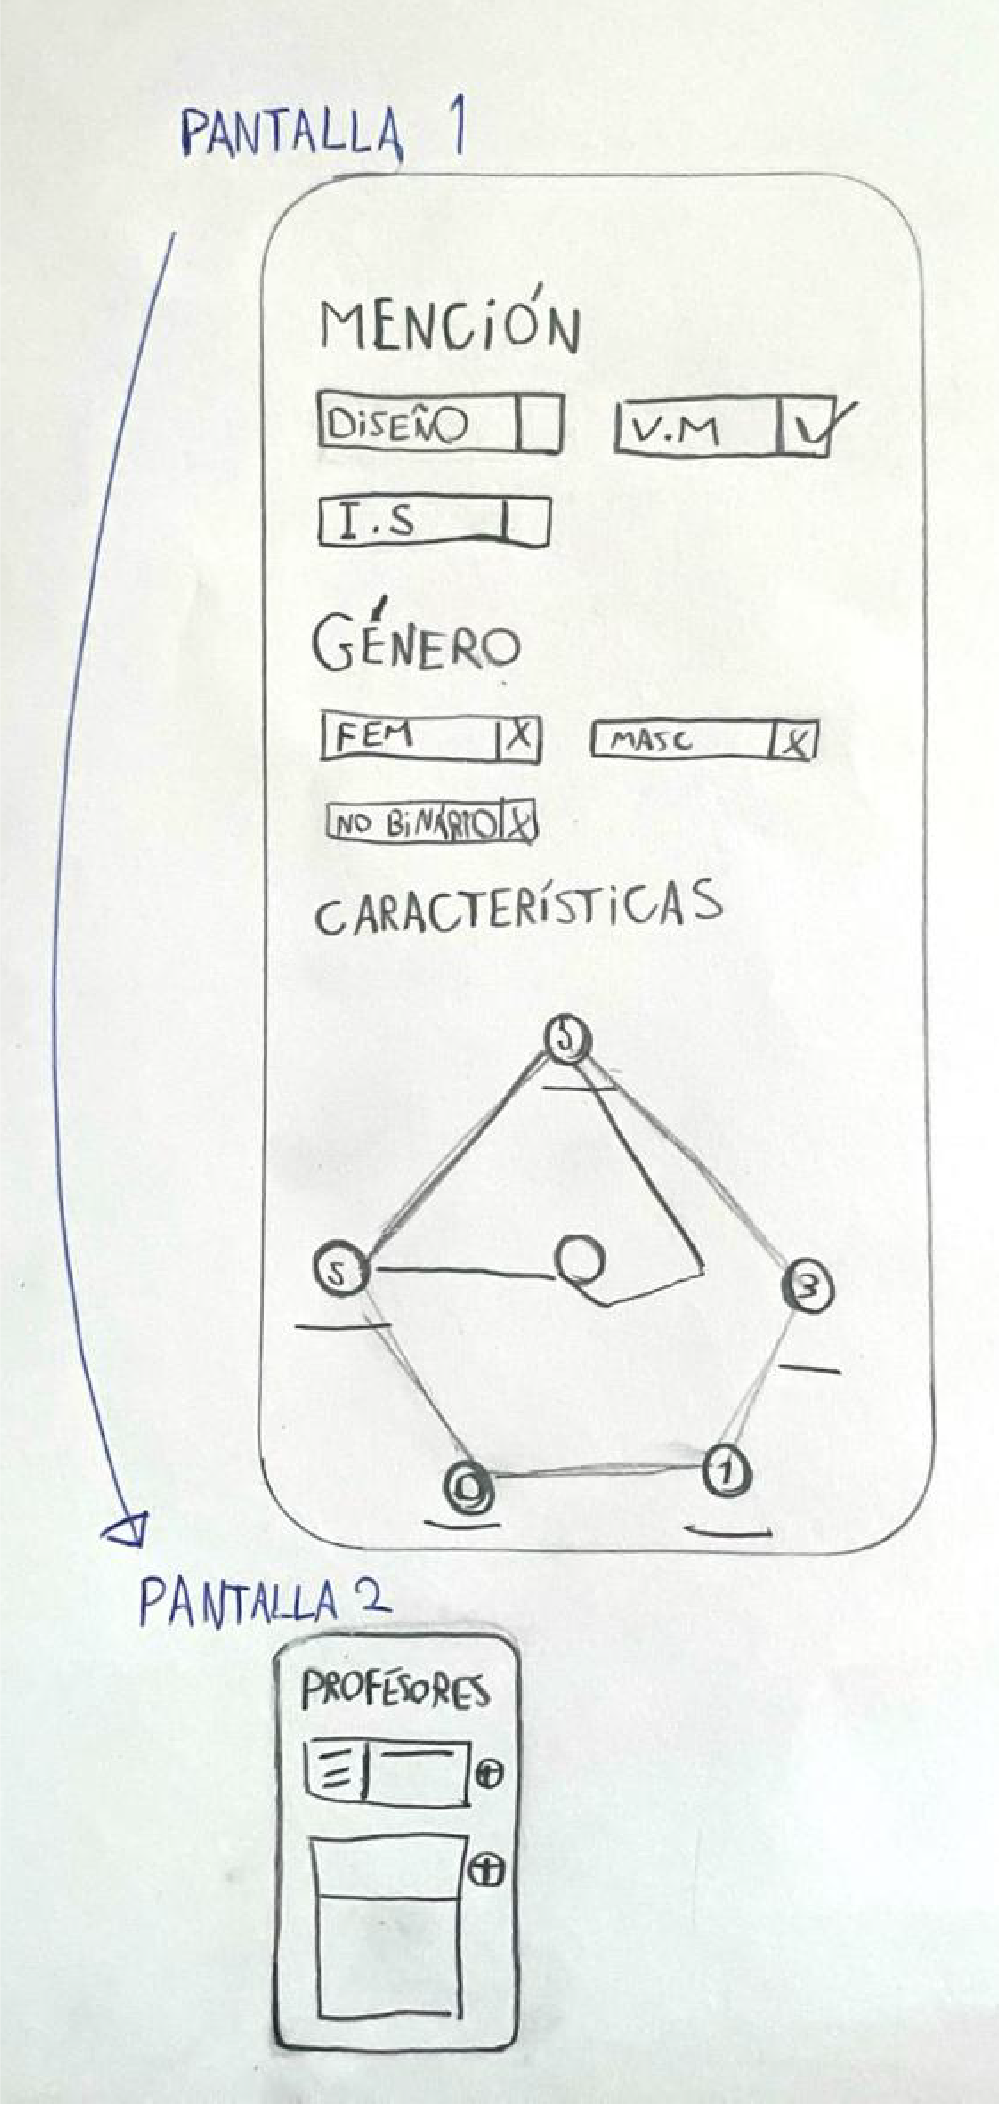 PANTALLA 1
MENCIÓN
DISEÑO V.M
I.S
GÉNERO
FEM X MASC X
NO BINÁRIO X
CARACTERÍSTICAS
5
5 3
0 1
PANTALLA 2
PROFÉSORES